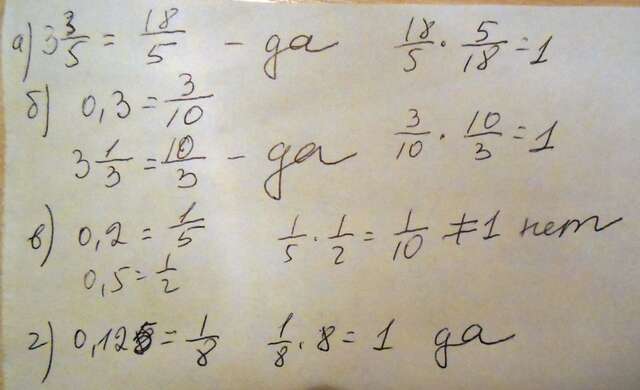 а) 3 3/5 = 18/5 - да 18/5 · 5/18 = 1
б) 0,3 = 3/10
3 1/3 = 10/3 - да 3/10 · 10/3 = 1
в) 0,2 = 1/5 1/5 · 1/2 = 1/10 ≠ 1 нет
0,5 = 1/2
г) 0,125 = 1/8 1/8 · 8 = 1 да